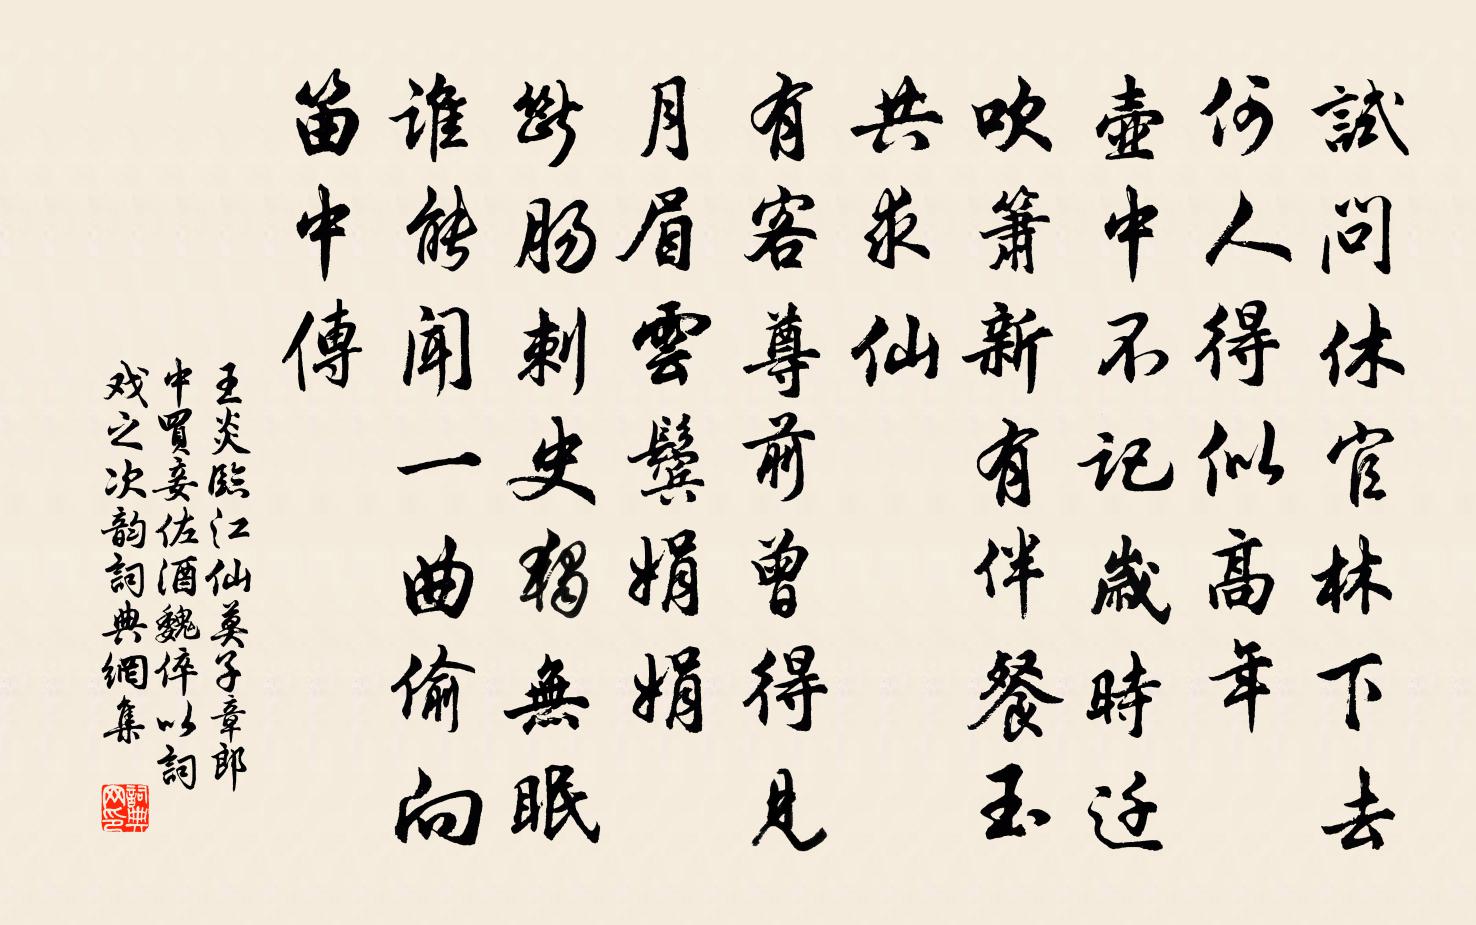 試問休官林下去
何人得似高年
壺中不記歲時迁
吹簫新有伴餐玉
共求仙
有客尊前曾得見
月眉雲鬢娟娟
斷腸刺史獨無眠
誰能聞一曲偷向
笛中傳
王炎臨江仙莫子章郎
中買妾佐酒魏倅以詞
戏之次韵詞典網集
詞典
网印